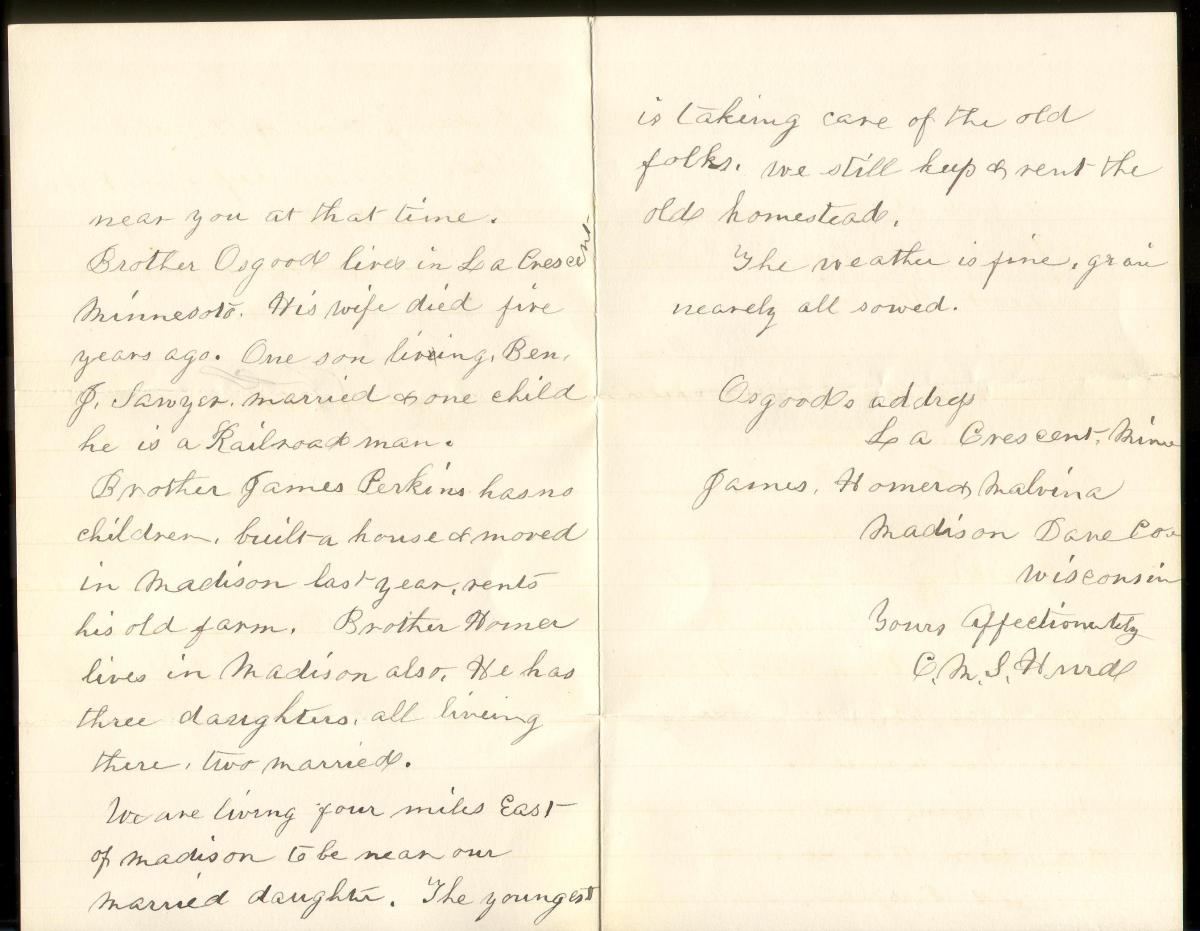 near you at that time.
Brother Osgood lives in La Crescent
Minnesota. His wife died five
years ago. One son liveing, Ben,
J. Sawyer. married & one child
he is a Railroad man.
Brother James Perkins has no
children, built a house & moved
in Madison last year, rents
his old farm. Brother Homer
lives in Madison also, He has
three daughters, all liveing
there, two married.
We are living four miles East
of Madison to be near our
married daughter. The youngest
is takeing care of the old
folks. We still keep & rent the
old homestead.
The weather is fine, grain
nearely all sowed.
Osgoods address
La Crescent, Minn
James, Homer & Malvina
Madison Dane Co.
Wisconsin
Yours Affectionately
C. M. S. Hurd